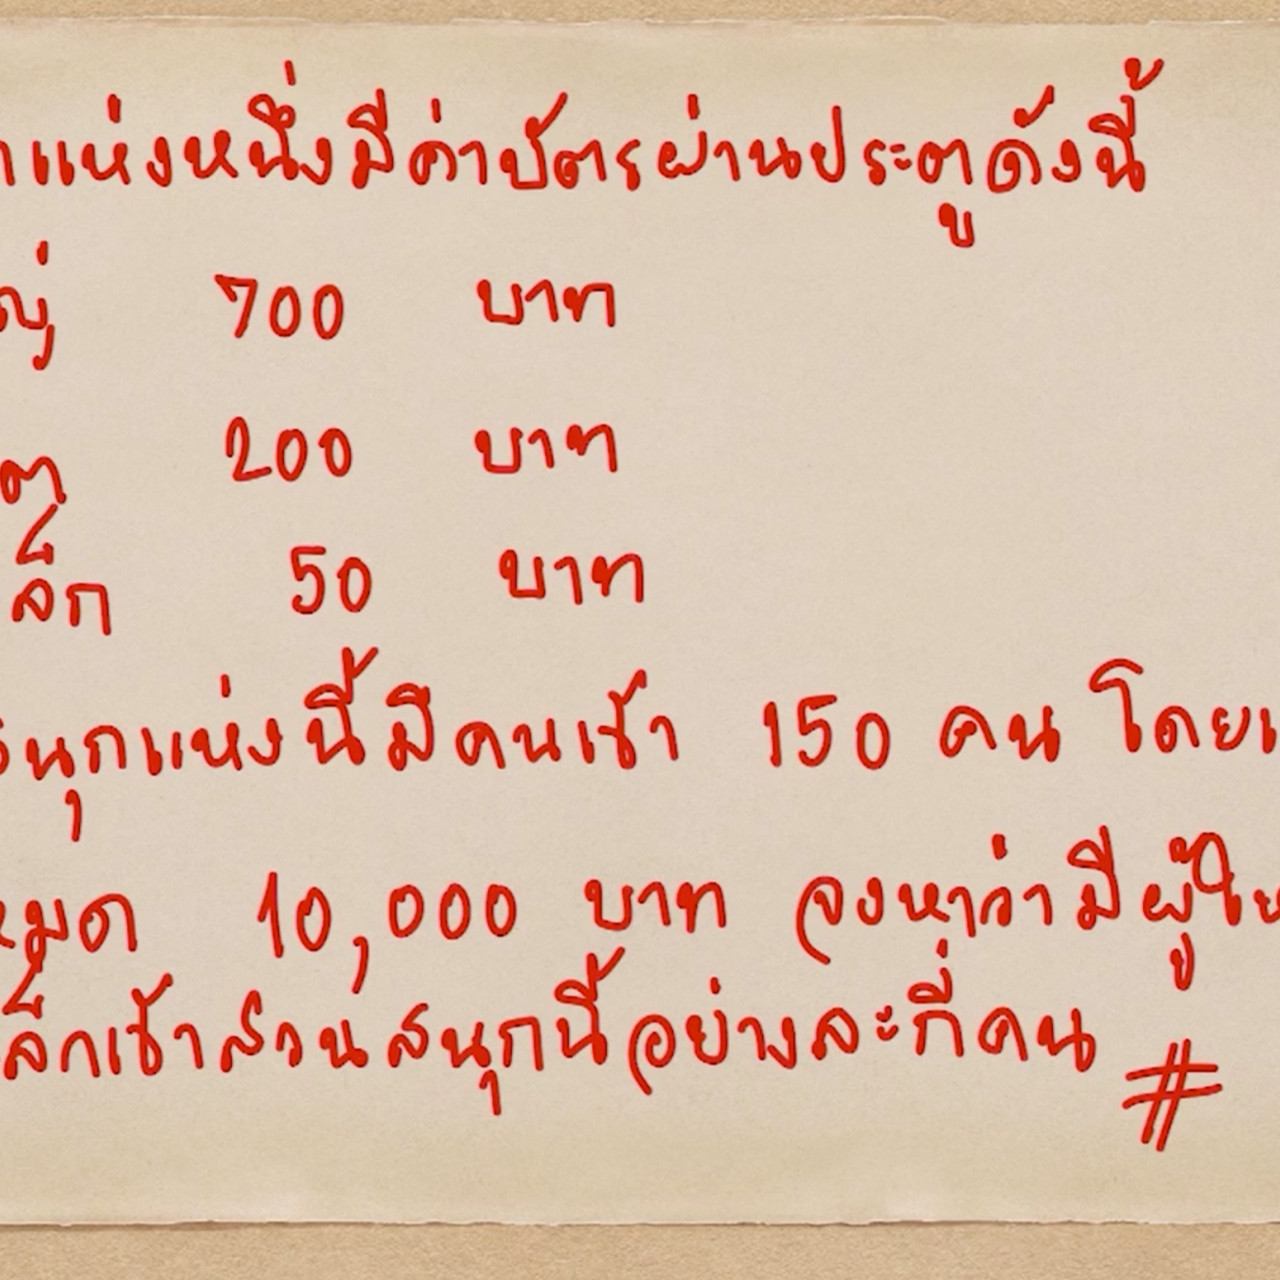 แห่งหนึ่งมีค่าบัตรผ่านประตูดังนี้
ญ่ 700 บาท
ต 200 บาท
ล็ก 50 บาท
นุกแห่งนี้มีคนเข้า 150 คน โดยเ
หมด 10,000 บาท จงหาว่ามีผู้ให
ล็กเข้าสวนสนุกนี้อย่างละกี่คน #